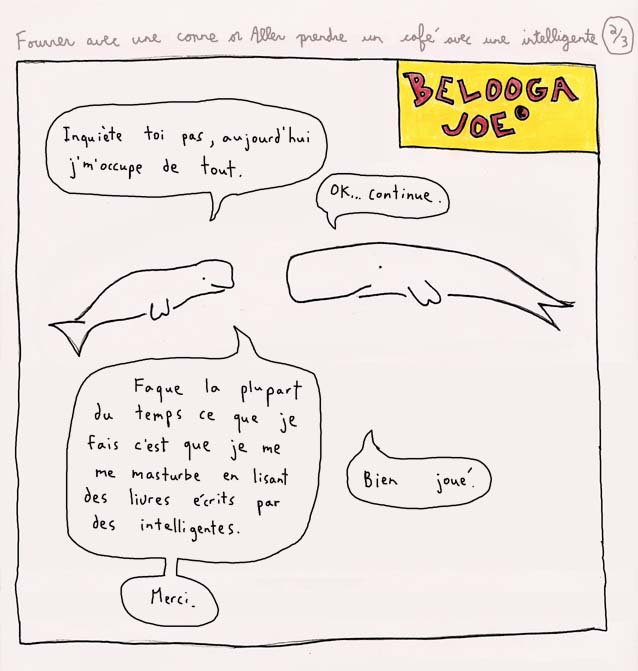 Fourrer avec une conne ou Aller prendre un café avec une intelligente 2/3
BELOOGA
JOE
Inquiète toi pas, aujourd'hui
j'm'occupe de tout.
OK... continue.
Faque la plupart
du temps ce que je
fais c'est que je me
me masturbe en lisant
des livres écrits par
des intelligentes.
Bien joué.
Merci.